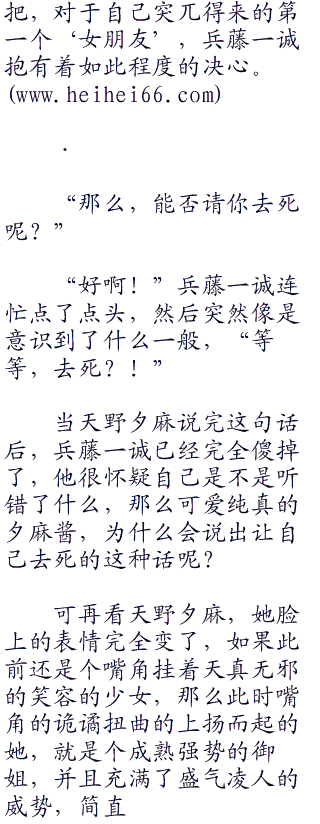 把，对于自己突兀得来的第
一个‘女朋友’，兵藤一诚
抱有着如此程度的决心。
(www.heihei66.com)
．
“那么，能否请你去死
呢？”
“好啊！”兵藤一诚连
忙点了点头，然后突然像是
意识到了什么一般，“等
等，去死？！”
当天野夕麻说完这句话
后，兵藤一诚已经完全傻掉
了，他很怀疑自己是不是听
错了什么，那么可爱纯真的
夕麻酱，为什么会说出让自
己去死的这种话呢？
可再看天野夕麻，她脸
上的表情完全变了，如果此
前还是个嘴角挂着天真无邪
的笑容的少女，那么此时嘴
角的诡谲扭曲的上扬而起的
她，就是个成熟强势的御
姐，并且充满了盛气凌人的
威势，简直